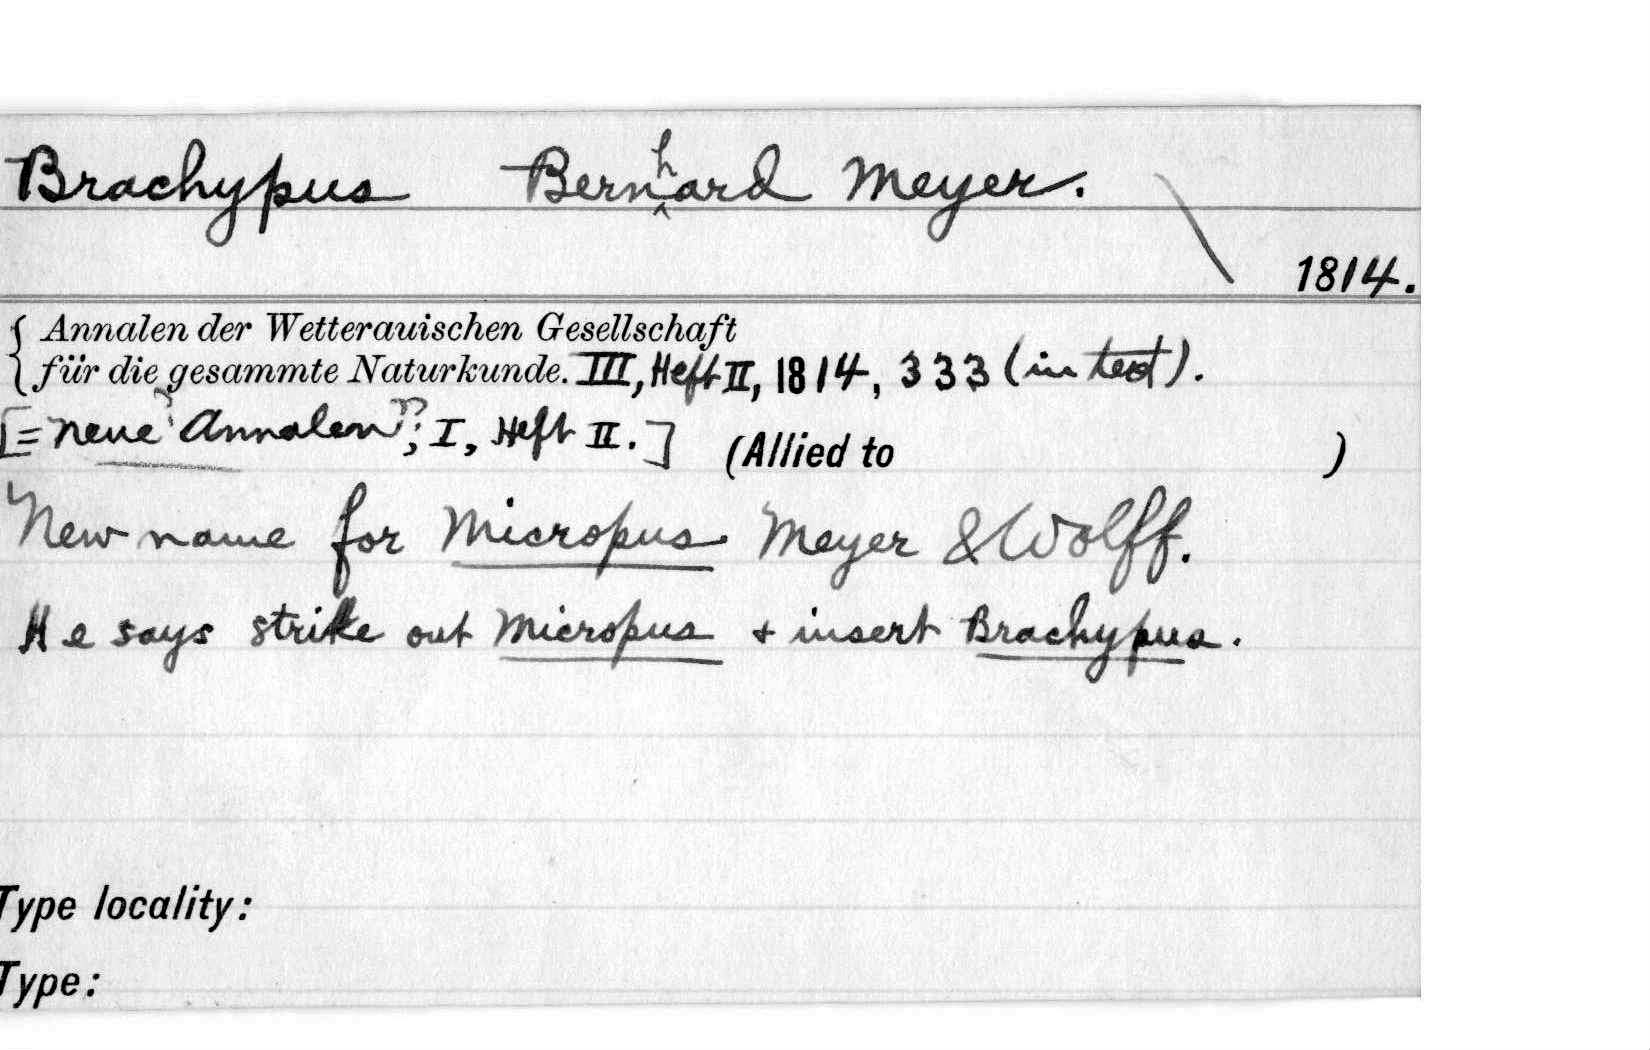 Brachypus Bernhard Meyer.
1814.
{ Annalen der Wetterauischen Gesellschaft
für die gesammte Naturkunde. III, Heft II, 1814, 333 (in text).
[= "neue Annalen"?, I, Heft II.] (Allied to )
New name for Micropus Meyer & Wolff.
He says strike out Micropus + insert Brachypus.
Type locality:
Type: